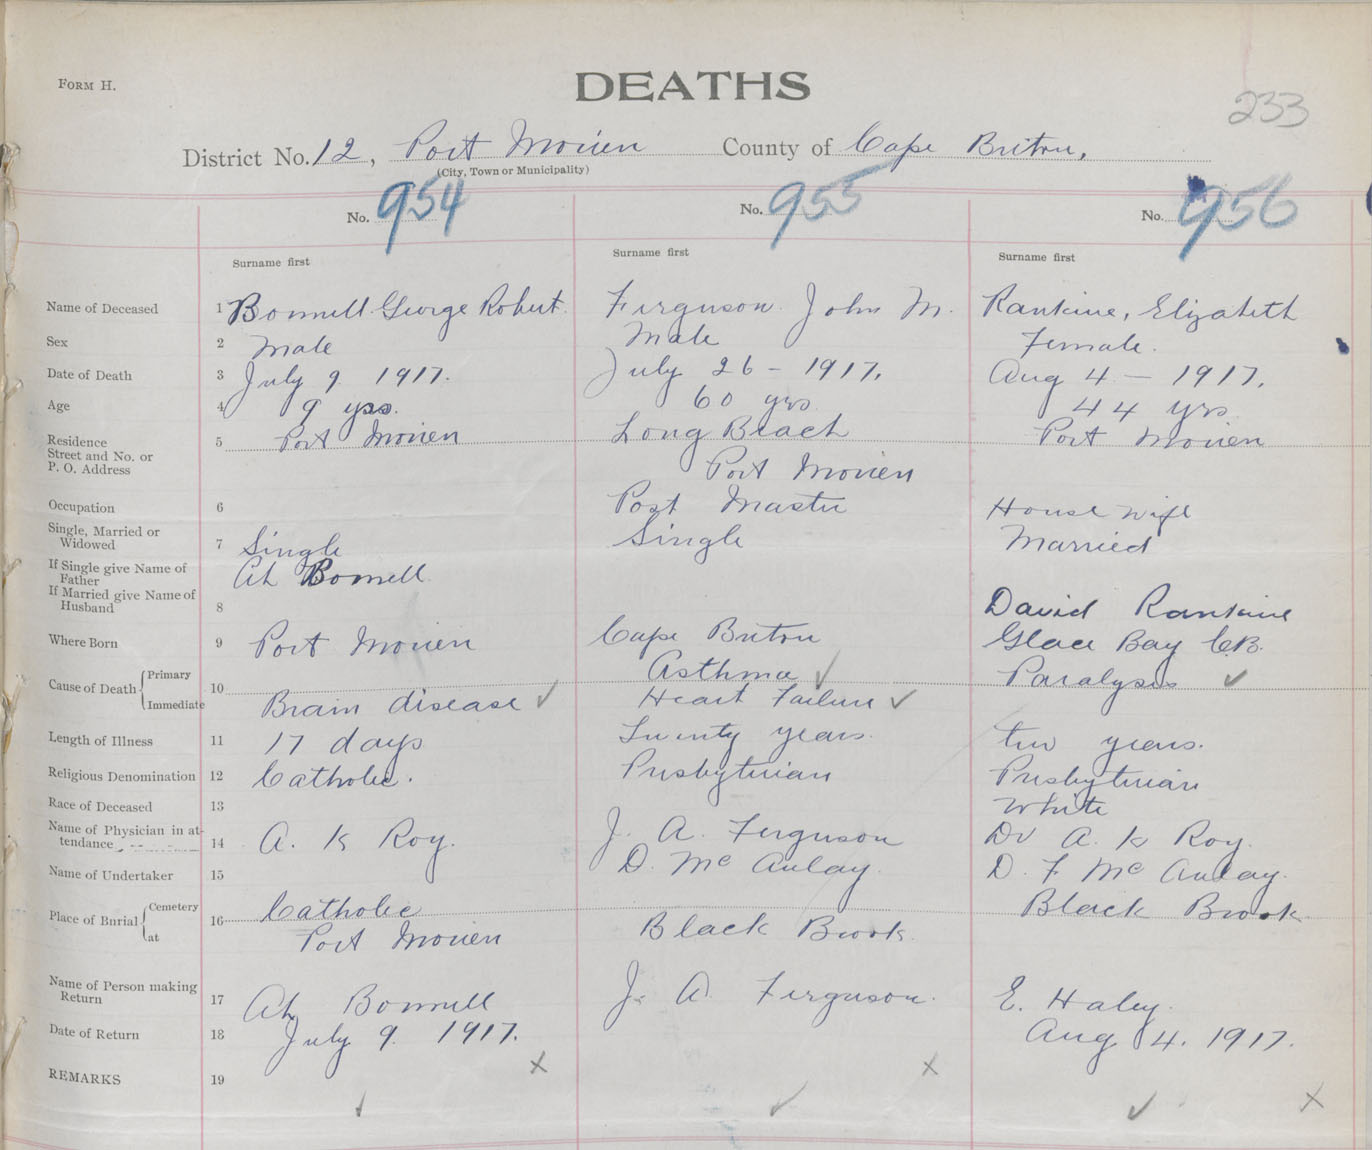 FORM H.
DEATHS
233
District No. 12, Port Morien County of Cape Briton,
(City, Town or Municipality)
No. 954 No. 955 No. 956
Surname first Surname first Surname first
Name of Deceased 1 Bonnell George Robert. Ferguson. John M. Rankine, Elizabeth
Sex 2 Male Male Female.
Date of Death 3 July 9 1917. July 26 - 1917. Aug 4 - 1917.
Age 4 9 yrs. 60 yrs 44 yrs
Residence 5 Port Morien Long Beach Port Morien
Street and No. or
P. O. Address Port Morien
Occupation 6 Post Master House wife
Single, Married or
Widowed 7 Single Single Married
If Single give Name of
Father Bonnell.
If Married give Name of
Husband 8 David Rankine
Where Born 9 Port Morien Cape Briton Glace Bay C.B.
Cause of Death Primary 10 Asthma Paralysis
Immediate Brain disease Heart Failure
Length of Illness 11 17 days Twenty years. two years.
Religious Denomination 12 Catholic. Presbyterian Presbyterian
Race of Deceased 13 White
Name of Physician in at-
tendance 14 A. K Roy. J. A. Ferguson Dr A. K Roy.
Name of Undertaker 15 D. Mc Aulay. D. F Mc Aulay.
Place of Burial Cemetery 16 Catholic Black Brook
at Port Morien Black Brook.
Name of Person making
Return 17 Bonnell J. A. Ferguson. E. Haley.
Date of Return 18 July 9. 1917. Aug 4. 1917.
REMARKS 19 x x x